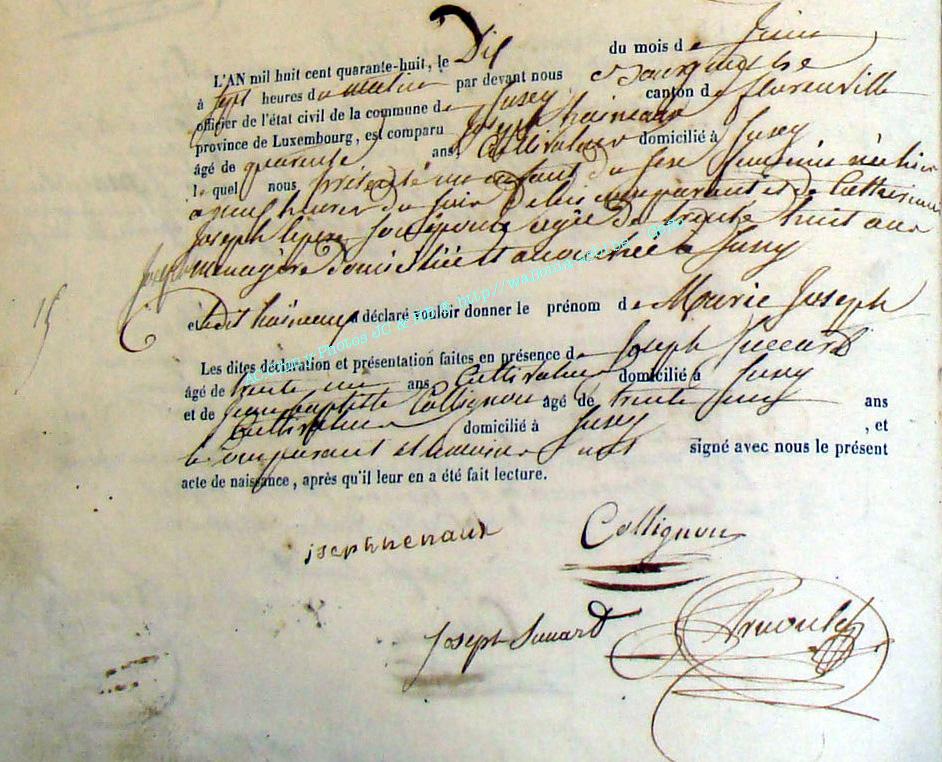 L'AN mil huit cent quarante-huit, le Dix du mois de Juin
à sept heures du matin par devant nous Bourgmestre
officier de l'état civil de la commune de Jusey canton de florenville
province de Luxembourg, est comparu Joseph hainaux
âgé de quarente ans, Cultivateur domicilié à Jusey
lequel nous présenté un enfant du sexe féminin né hier
à neuf heures du soir De lui comparant et de Catherine
Joseph lépine son épouse agée de trente huit ans
menagère domiciliée et accouchée à Jusey
et a déclaré vouloir donner le prénom de Marie Joseph
Les dites déclaration et présentation faites en présence de Joseph
âgé de trente un ans Cultivateur domicilié à Jusey
et de Jean baptiste Collignon âgé de trente ans
Cultivateur domicilié à Jusey , et
le comparant et temoins ont signé avec nous le présent
acte de naissance, après qu'il leur en a été fait lecture.
joseph henaux Collignon
Joseph Arnould